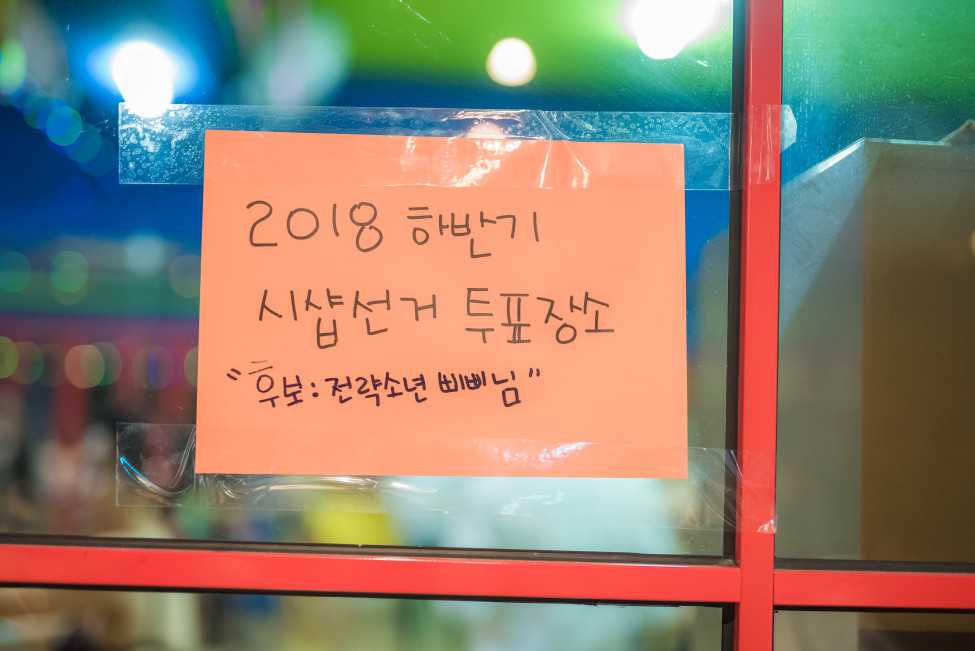 2018 하반기
시샵선거 투표장소
"후보:전략소년 삐삐님"